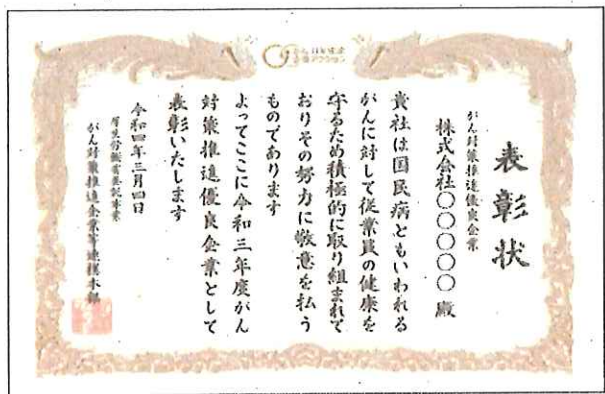 がん対策
企業アクション
表彰状
がん対策推進優良企業
株式会社〇〇〇〇〇 殿
貴社は国民病ともいわれる
がんに対して従業員の健康を
守るため積極的に取り組まれて
おりその努力に敬意を払う
ものであります
よってここに令和三年度がん
対策推進優良企業として
表彰いたします
令和四年三月四日
厚生労働省委託事業
がん対策推進企業等連携本部